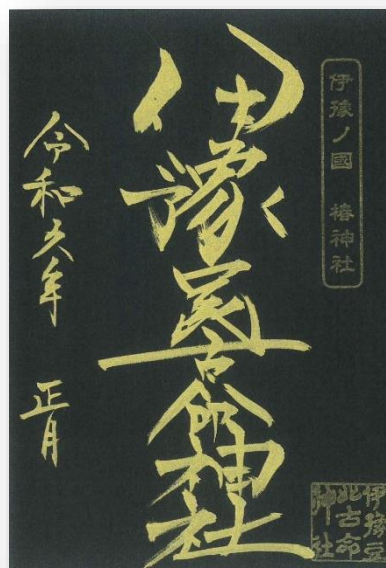 伊豫ノ國 椿神社
伊豫豆比古命神社
令和年 正月
伊豫豆
比古命
神社